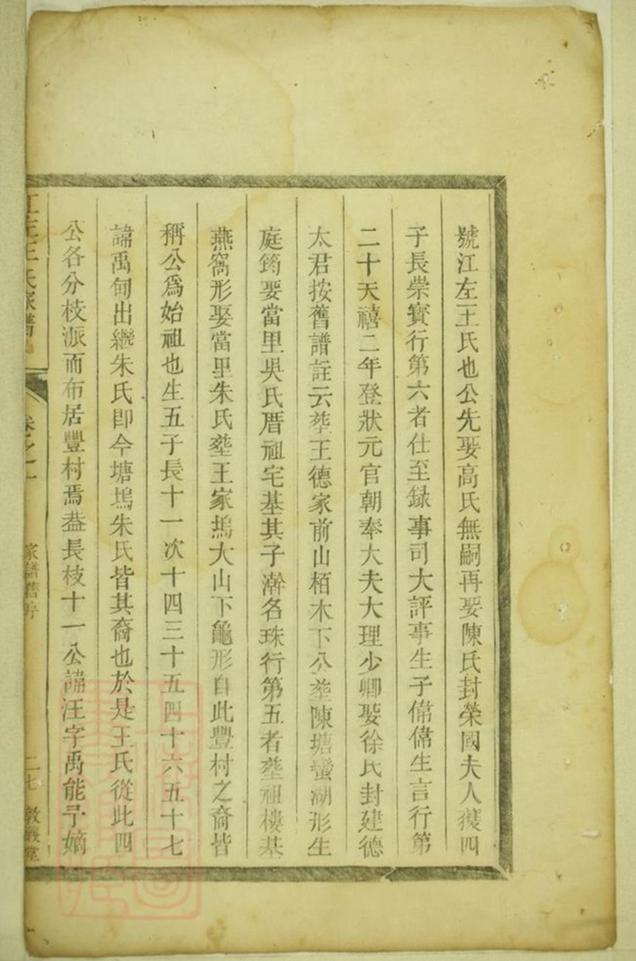 號江左王氏也公先娶高氏無嗣再娶陳氏封榮國夫人獲四
子長崇實行第六者仕至録事司大評事生子偹偹生言行第
二十天禧二年登狀元官朝奉大夫大理少卿娶徐氏封建德
太君按舊譜註云塟王德家前山栢木下公塟陳塘蠻湖形生
庭筠娶當里吳氏厝祖宅基其子澣名珠行第五者塟祖樓基
燕窩形娶當里朱氏塟王家塢大山下龜形自此豐村之裔皆
稱公爲始祖也生五子長十一次十四三十五四十六五十七
諱禹甸出繼朱氏即今塘塢朱氏皆其裔也於是王氏從此四
公各分枝派而布居豐村焉葢長枝十一公諱汪字禹能予嫡
江左王氏家譜 卷之一 家譜舊序 二七 敦義堂